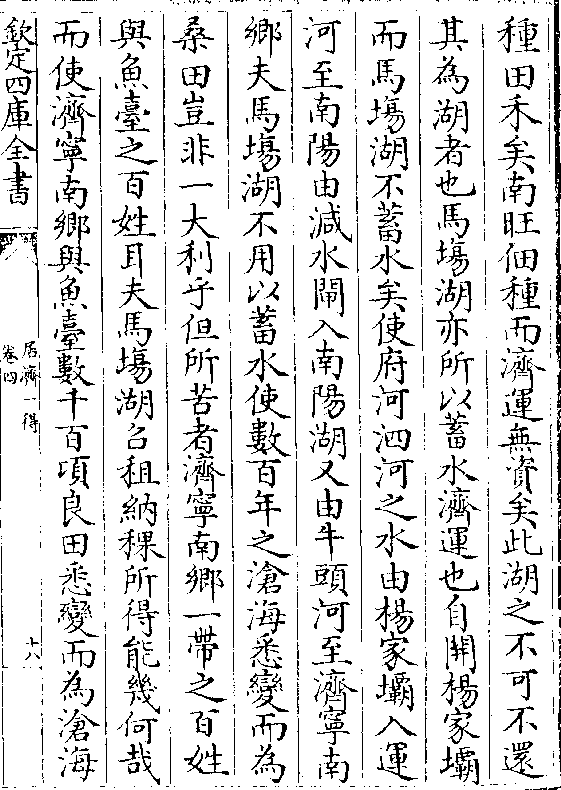 種田禾矣南旺佃種而濟運無資矣此湖之不可不還
其為湖者也馬塲湖亦所以蓄水濟運也自開楊家壩
而馬塲湖不蓄水矣使府河泗河之水由楊家壩入運
河至南陽由減水閘入南陽湖又由牛頭河至濟寧南
鄉夫馬塲湖不用以蓄水使數百年之滄海悉變而為
桑田豈非一大利乎但所苦者濟寧南鄉一帶之百姓
與魚臺之百姓耳夫馬塲湖召租納稞所得能幾何哉
而使濟寧南鄉與魚臺數千百頃良田悉變而為滄海
欽定四庫全書
居濟一得
卷四
十八